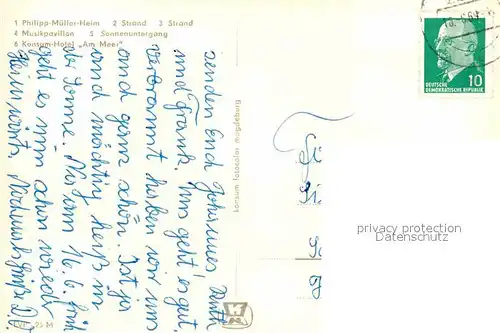 1 Philipp-Müller-Heim 2 Strand 3 Strand
4 Musikpavillon 5 Sonnenuntergang
6 Konsum-Hotel „Am Meer"
senden Euch Johannes, Ruth
und Frank. Uns geht es gut,
verbrannt haben wir uns
auch ganz schön. Ist ja
auch mächtig heiß in
der Sonne. Na am 16. 6. früh
geht es nun schon wieder
heimwärts. Nochmals Grüße D. O.
konsum fotocolor magdeburg
DEUTSCHE
DEMOKRATISCHE REPUBLIK
10
privacy protection
Datenschutz